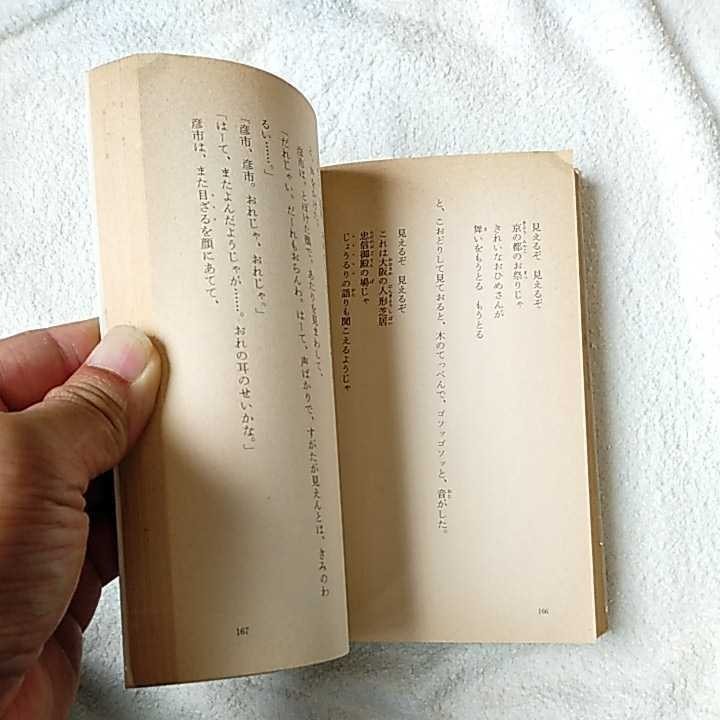 見えるぞ　見えるぞ
京の都のお祭りじゃ
きれいなおひめさんが
舞いをもうとる　もうとる
と、こおどりして見ておると、木のてっぺんで、ゴソッゴソッと、音がした。
見えるぞ　見えるぞ
これは大阪の人形芝居
忠信御殿の場じゃ
じょうるりの語りも聞こえるようじゃ
166
彦市は、とぼけた顔で、あたりを見まわして、
「だれじゃい。だーれもおらんわ。はーて、声ばかりで、すがたが見えんとは、きみのわ
るい……。」
「彦市、彦市。おれじゃ、おれじゃ。」
「はーて、またよんだようじゃが……。おれの耳のせいかな。」
彦市は、また目ざるを顔にあてて、
167